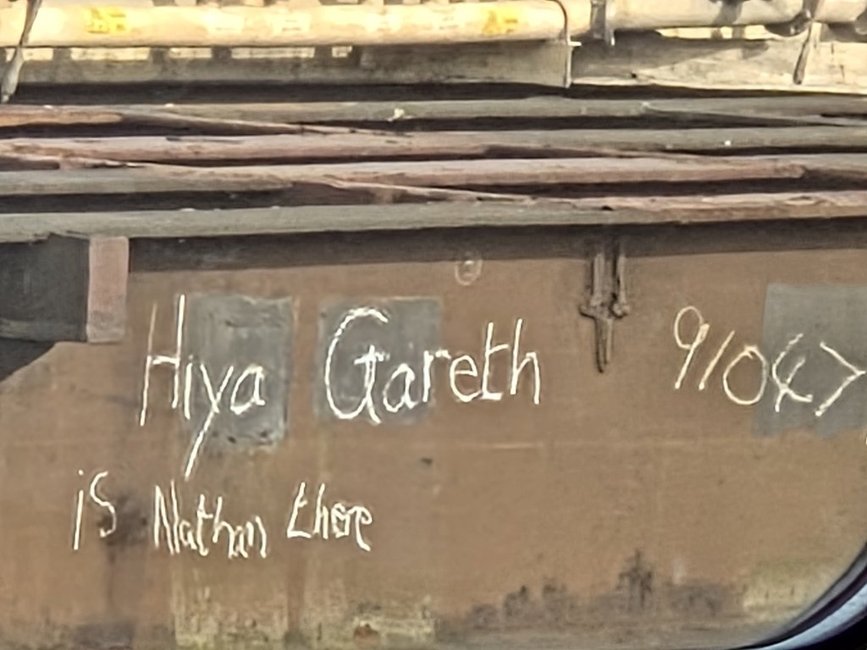 Hiya Gareth 91047
is Nathan there